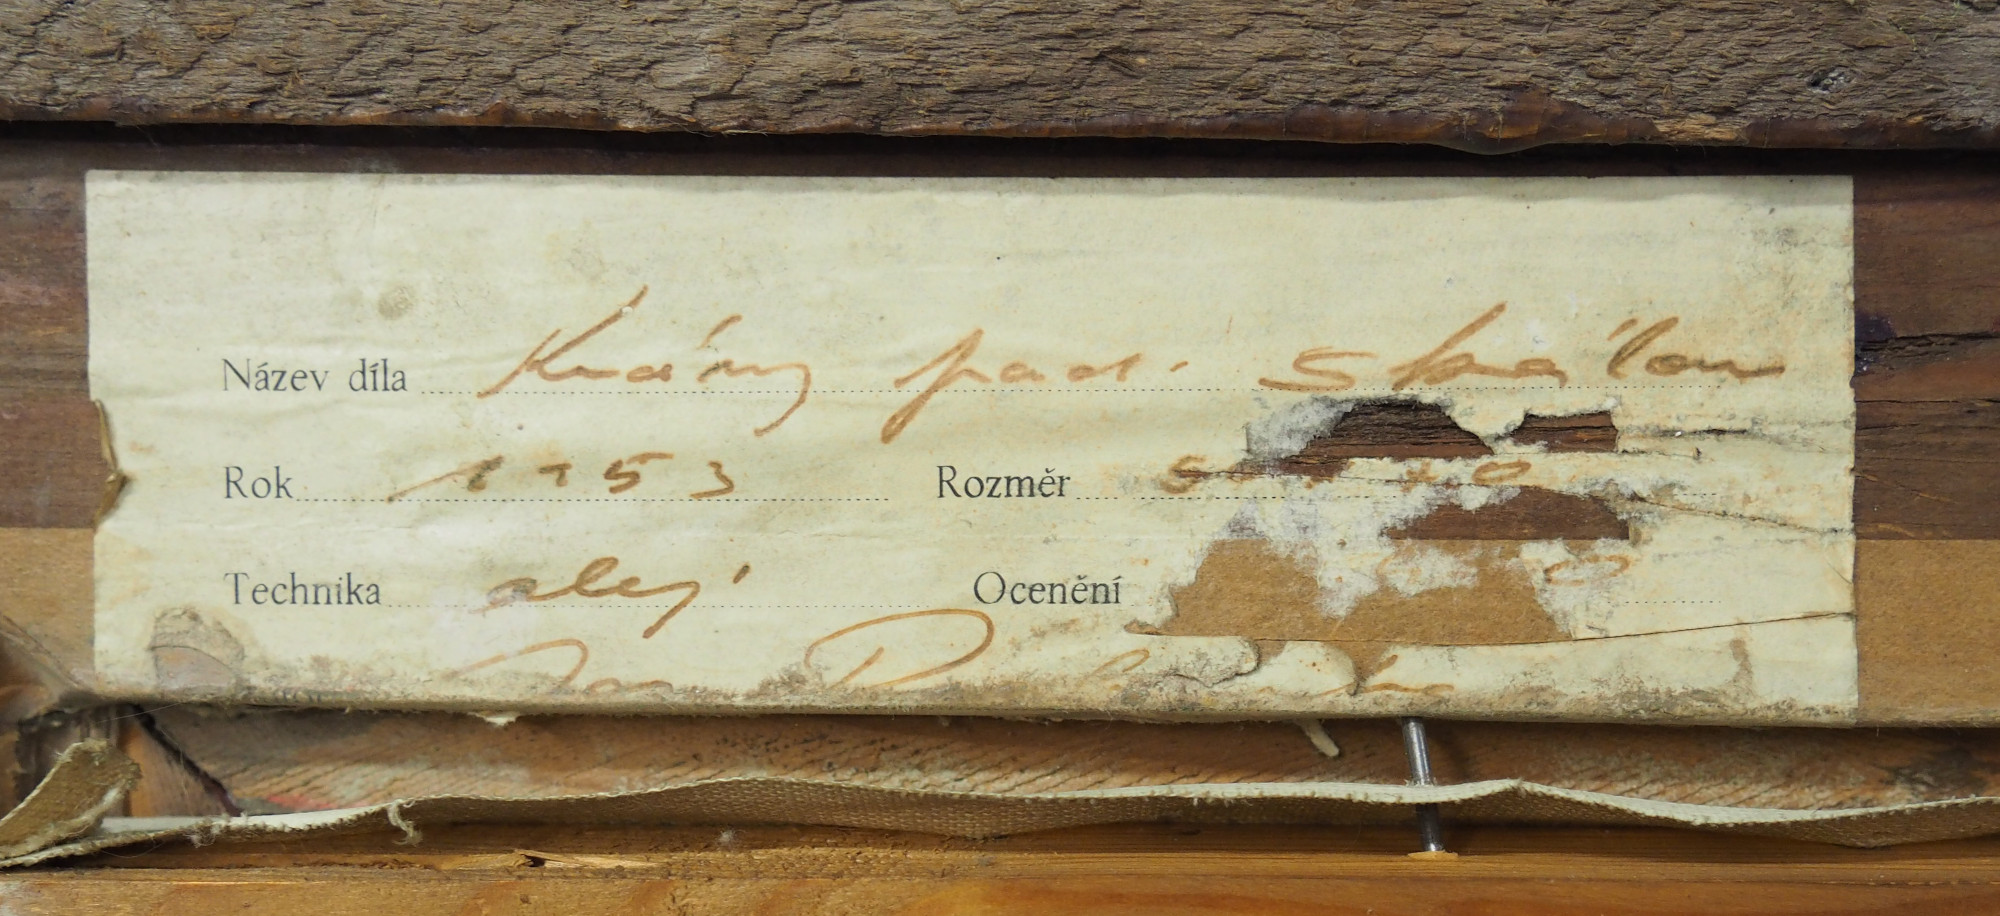 Název díla Krávy pod skálou
Rok 1953 Rozměr
Technika olej Ocenění
Jan